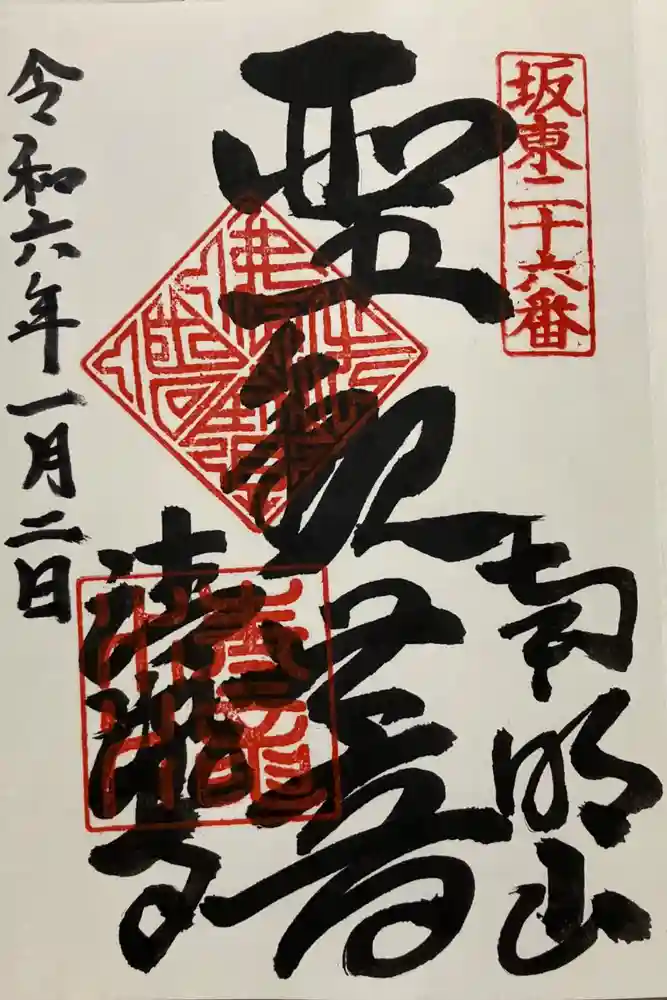 坂東二十六番
南明山
聖観世音
清瀧寺
令和六年一月二日